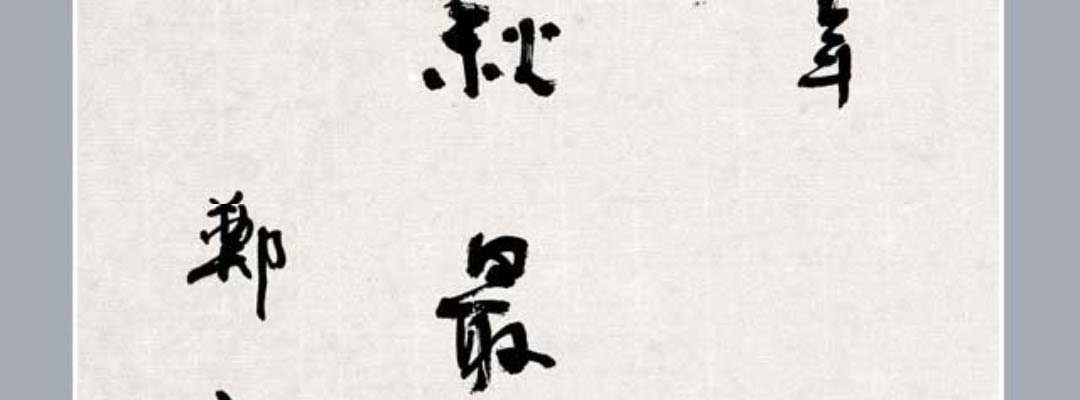 年
秋最
鄭